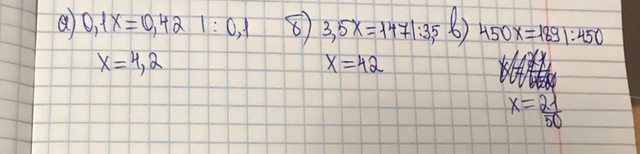 а) 0,1x=0,42 |:0,1 б) 3,5x=147|:3,5 в) 450x=189|:450
x=4,2 x=42
x=21/50